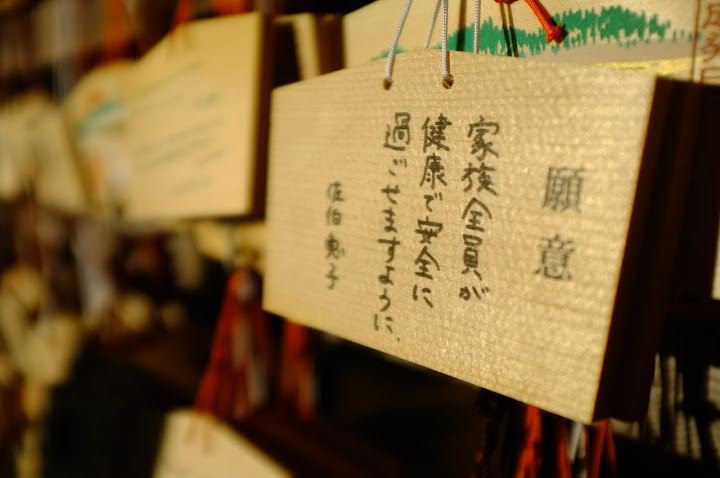 願意
家族全員が
健康で安全に
過ごせますように、
佐伯恵子